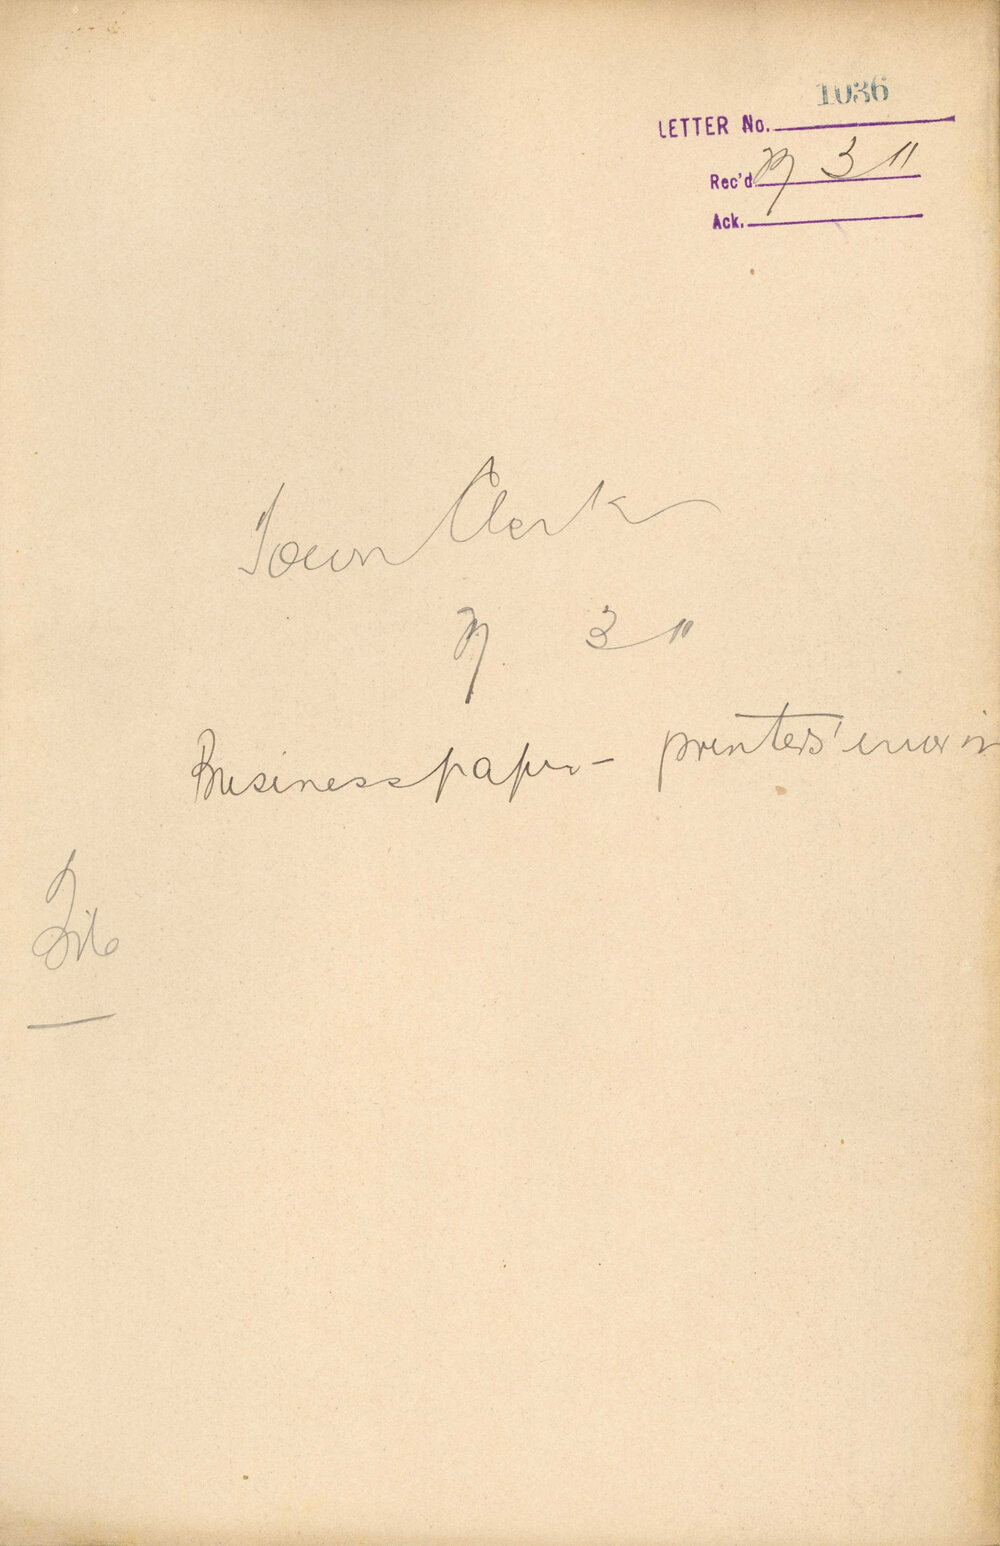 1036
LETTER No.
Rec'd 3 11
Ack.
Town Clerk
3 11
Business paper - printers' error in
File